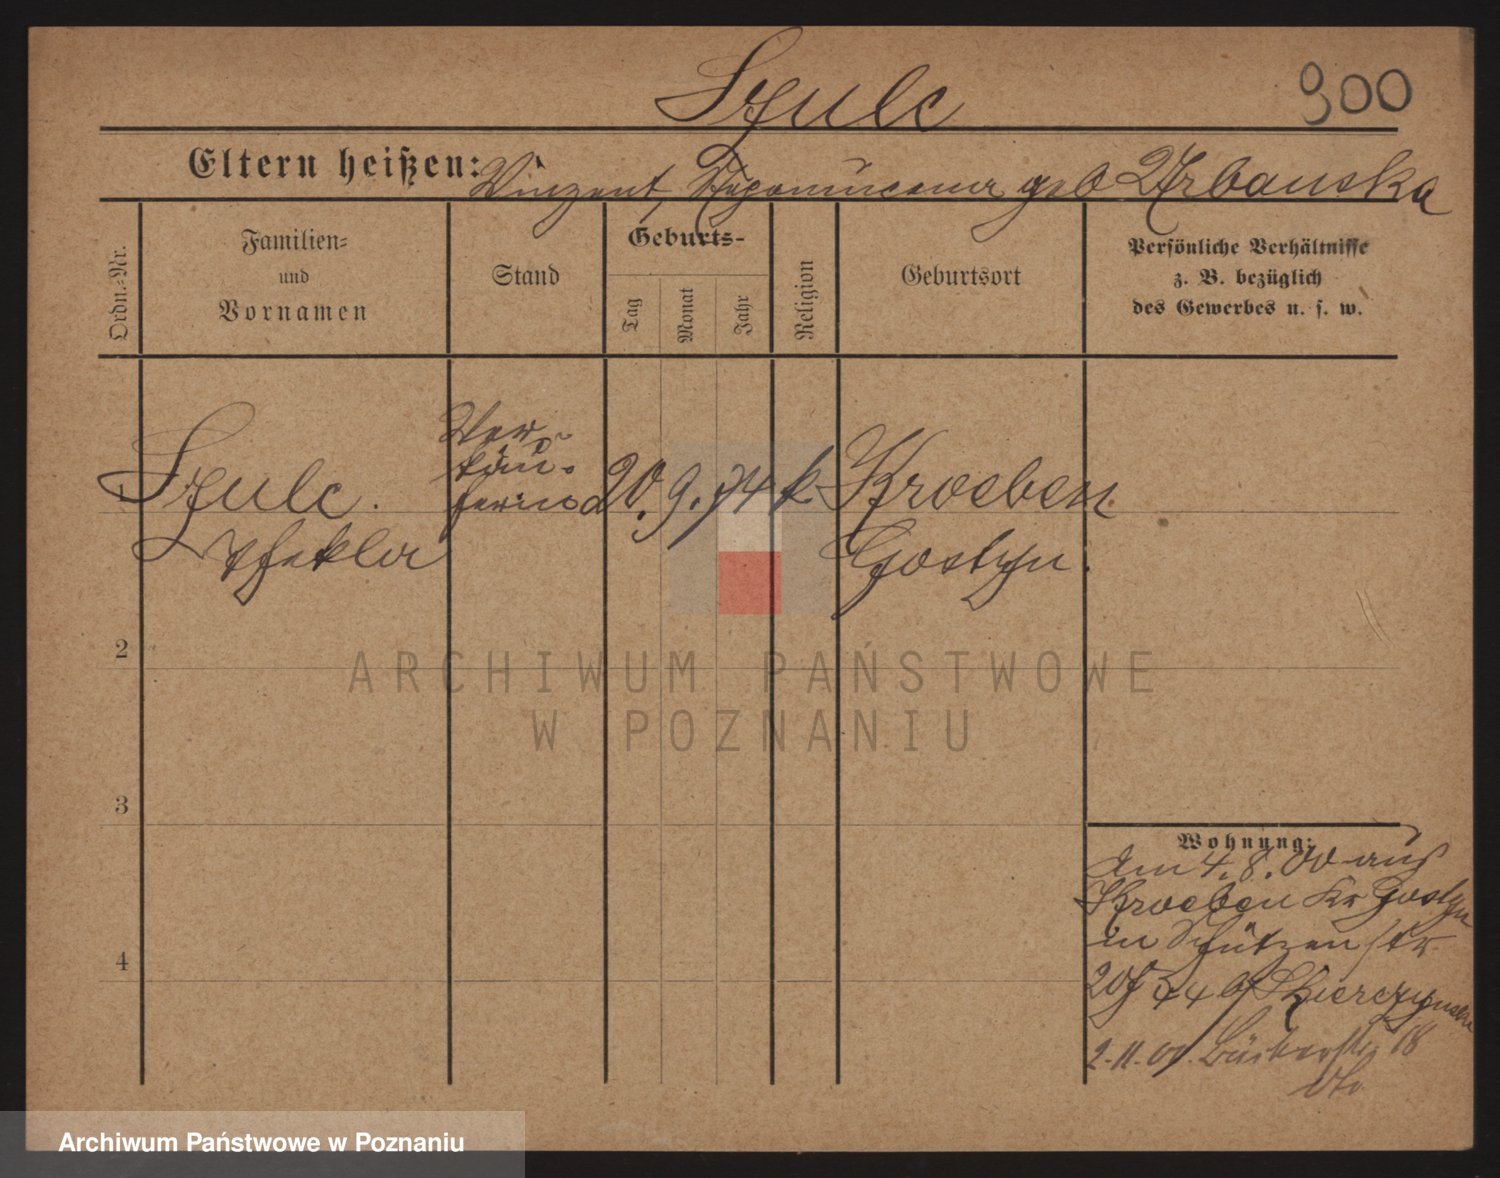 Szulc
900
Eltern heißen: Vinzent, Nepomucena geb Urbanska
Ordn.-Nr.
Familien-
und
Vornamen
Stand
Geburts-
Tag
Monat
Jahr
Religion
Geburtsort
Persönliche Verhältnisse
z. B. bezüglich
des Gewerbes u. s. w.
1 Szulc. Ver- 20. 9. 74 k Kroeben
Thekla käu- Gostyn.
ferin
2
ARCHIWUM PAŃSTWOWE
W POZNANIU
3
4
Wohnung:
Am 4.8.00 aus
Kroeben Kr Gostyn
in Schützenstr
20 b/ Skierczynska
2.11.00. 18
Archiwum Państwowe w Poznaniu